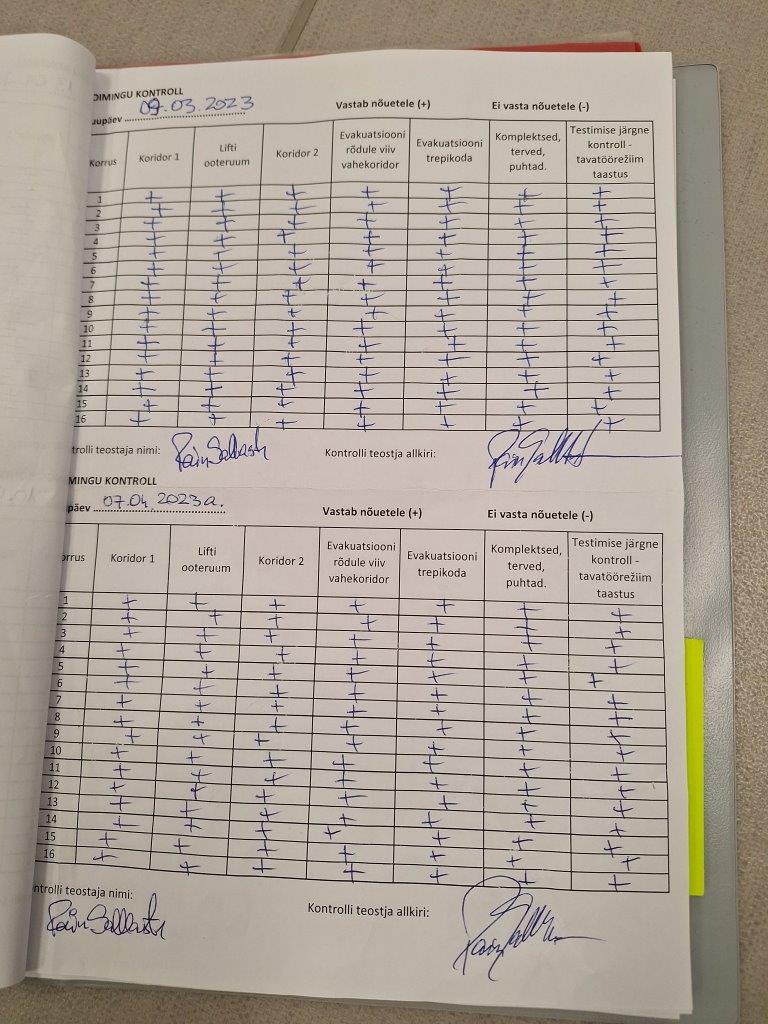 OIMINGU KONTROLL
uupäev 09.03.2023 Vastab nõuetele (+) Ei vasta nõuetele (-)
Korrus Koridor 1 Lifti ooteruum Koridor 2 Evakuatsiooni rõdule viiv vahekoridor Evakuatsiooni trepikoda Komplektsed, terved, puhtad. Testimise järgne kontroll - tavatöörežiim taastus
1 + + + + + + +
2 + + + + + + +
3 + + + + + + +
4 + + + + + + +
5 + + + + + + +
6 + + + + + + +
7 + + + + + + +
8 + + + + + + +
9 + + + + + + +
10 + + + + + + +
11 + + + + + + +
12 + + + + + + +
13 + + + + + + +
14 + + + + + + +
15 + + + + + + +
16 + + + + + + +
trolli teostaja nimi: Kontrolli teostja allkiri:
MINGU KONTROLL
päev 07.04.2023a. Vastab nõuetele (+) Ei vasta nõuetele (-)
orrus Koridor 1 Lifti ooteruum Koridor 2 Evakuatsiooni rõdule viiv vahekoridor Evakuatsiooni trepikoda Komplektsed, terved, puhtad. Testimise järgne kontroll - tavatöörežiim taastus
1 + + + + + + +
2 + + + + + + +
3 + + + + + + +
4 + + + + + + +
5 + + + + + + +
6 + + + + + + +
7 + + + + + + +
8 + + + + + + +
9 + + + + + + +
10 + + + + + + +
11 + + + + + + +
12 + + + + + + +
13 + + + + + + +
14 + + + + + + +
15 + + + + + + +
16 + + + + + + +
ntrolli teostaja nimi: Kontrolli teostja allkiri: